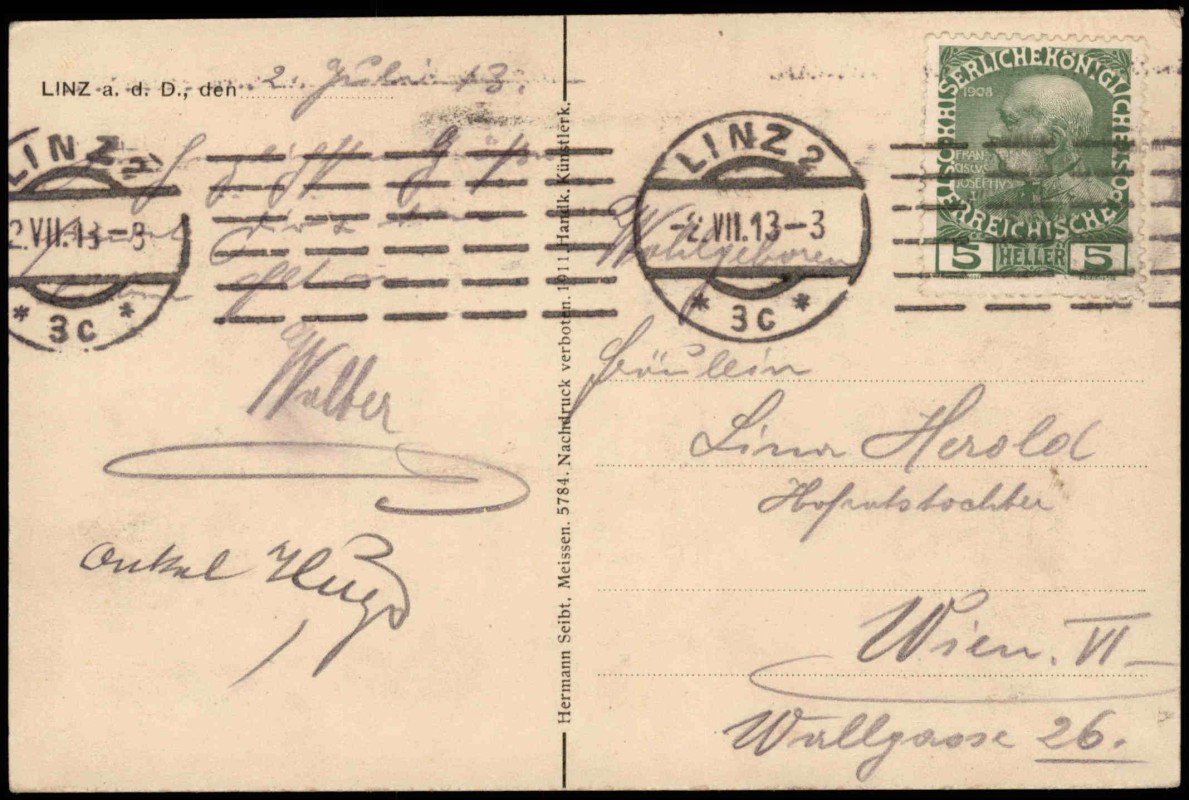 LINZ a. d. D., den 2. Juli 13.
LINZ 2
2.VII.13-3
* 3c *
Walter
Onkel Hugo
Hermann Seibt, Meissen. 5784. Nachdruck verboten. 1911. Handk. Künstlerk.
LINZ 2
-2.VII.13-3
* 3c *
KAISERLICHE KÖNIGLICHE ÖSTERREICHISCHE
1908
FRAN
JOSEPHVS
5 HELLER 5
Wohlgeboren
Fräulein
Lina Herold
Hofratstochter
Wien. VI
Wallgasse 26.